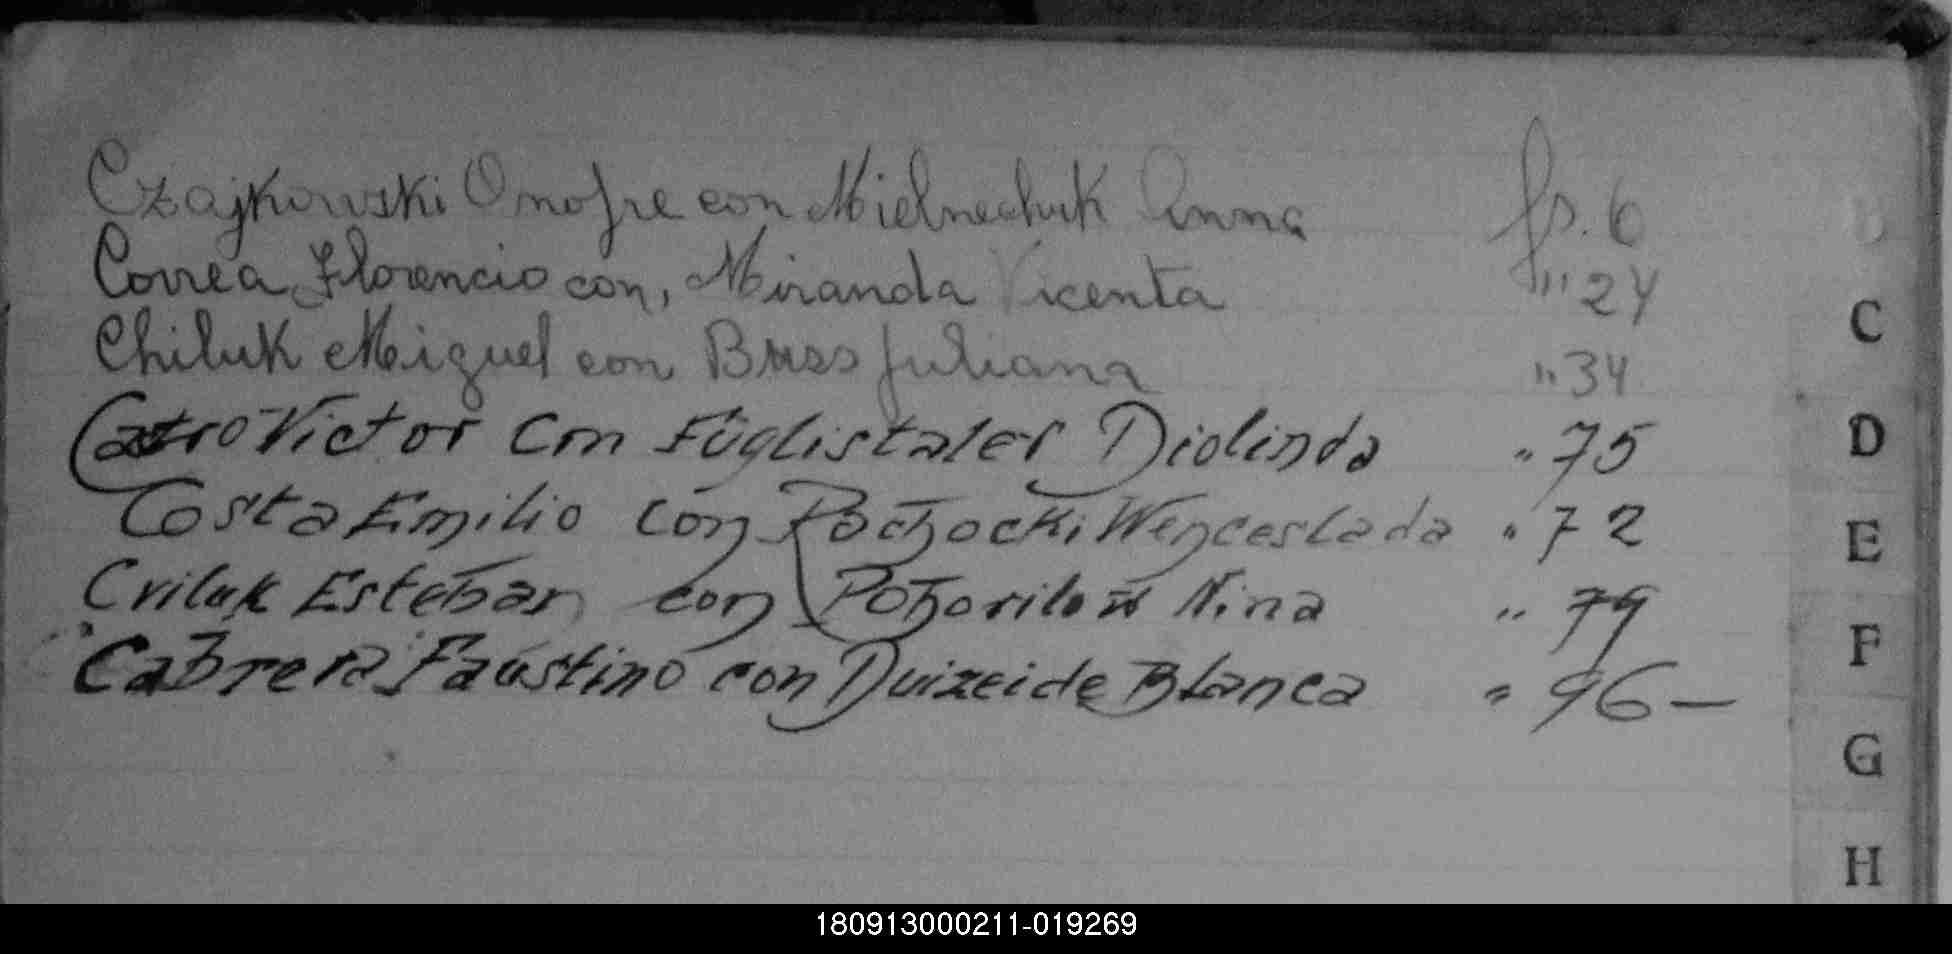 Czajkowski Onofre con Mielnechuk Anna fs. 6
Correa Florencio con, Miranda Vicenta " 24
Chiluk Miguel con Buss Juliana " 34
Castro Victor con Füglistaler Diolinda " 75
Costa Emilio con Pochocki Wenceslada " 72
Criluk Esteban con Pohorilow Nina " 79
Cabrera Faustino con Duizeide Blanca " 96 —
C
D
E
F
G
H
180913000211-019269